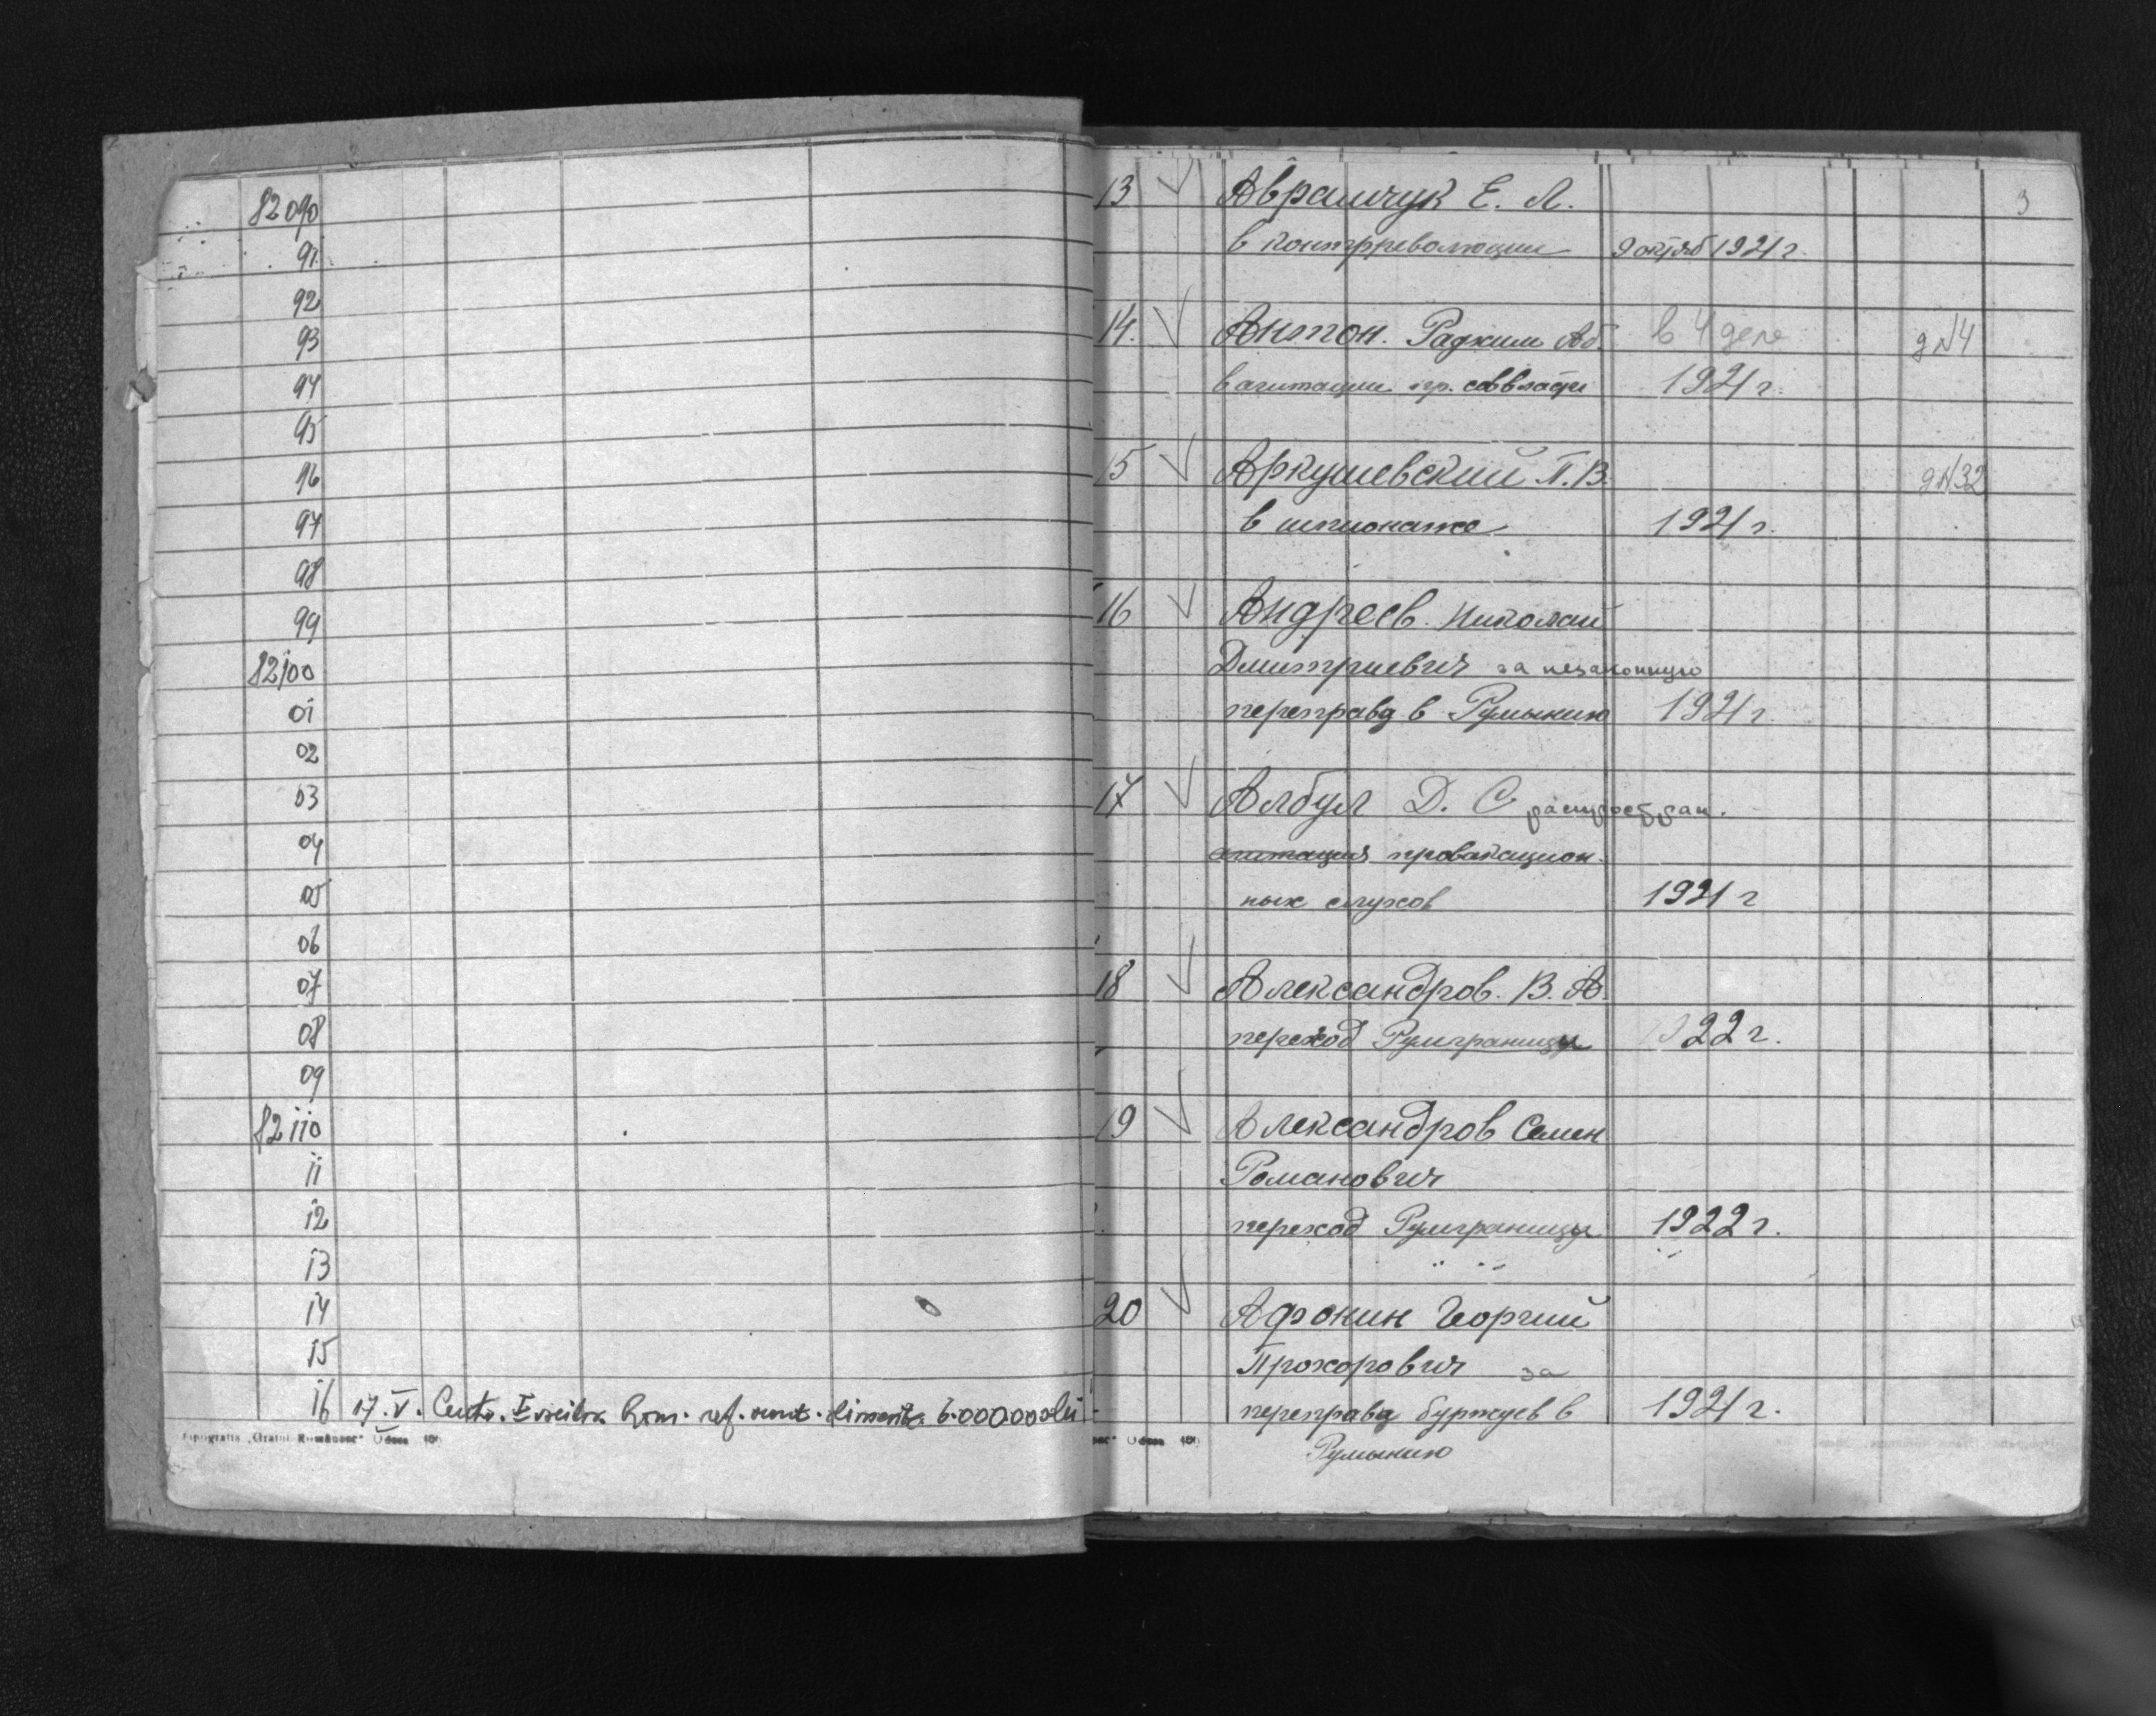 82090
91
92
93
94
95
96
97
98
99
82100
01
02
03
04
05
06
07
08
09
82110
11
12
13
14
15
16 17.V. 6.000.000 lei
Tipografia
3
13 Аврамчук Е. Л.
в контрреволюции 9 октяб 1921 г.
14. Антон. Раджим Аб. в 4 деле д №4
в агитации пр. соввласти 1921 г.
15 Аркушевский П. В. д №32
в шпионаже 1921 г.
16 Андреев Николай
Дмитриевич за незаконную
переправу в Румынию 1921 г.
17 Албул Д. С. распростран.
агитация провокацион.
ных слухов 1921 г
18 Александров. В. А.
переход Румграницы 1922 г.
19 Александров Семен
Романович
переход Румграницы 1922 г.
20 Афонин Георгий
Прохорович за
переправа буржуев в 1921 г.
Румынию